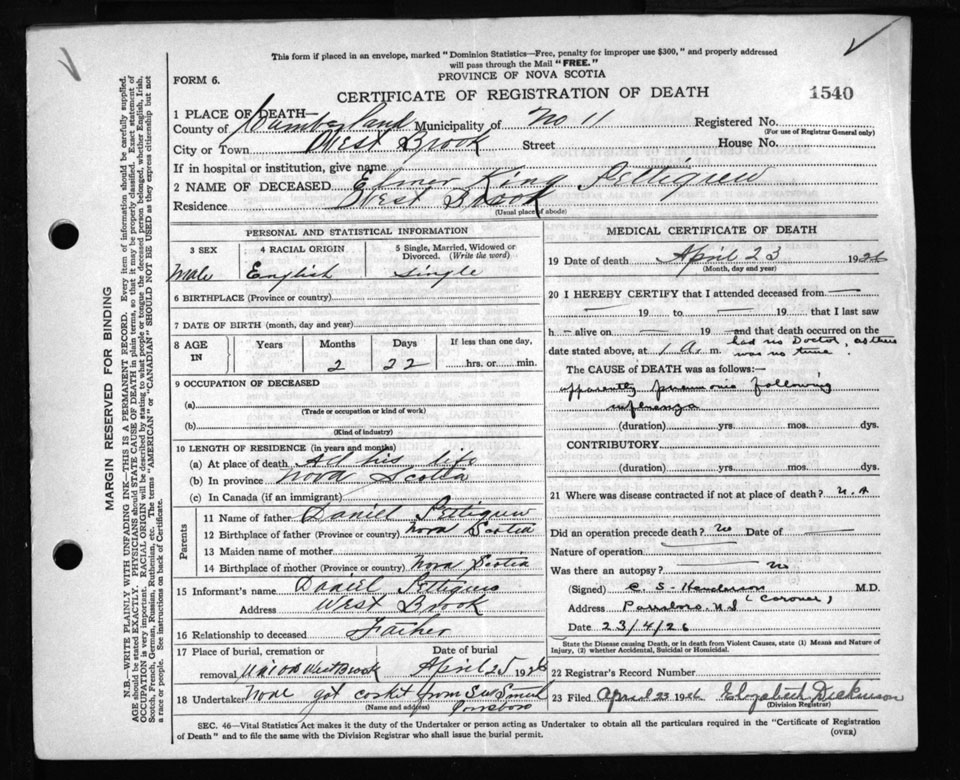 This form if placed in an envelope, marked "Dominion Statistics—Free, penalty for improper use $300," and properly addressed
will pass through the Mail "FREE."
PROVINCE OF NOVA SCOTIA
FORM 6.
CERTIFICATE OF REGISTRATION OF DEATH
1540
1 PLACE OF DEATH
County of Cumberland Municipality of No 11 Registered No.
(For use of Registrar General only)
City or Town West Brook Street House No.
If in hospital or institution, give name
2 NAME OF DECEASED Elmer King Pettigrew
Residence West Brook
(Usual place of abode)
PERSONAL AND STATISTICAL INFORMATION
3 SEX 4 RACIAL ORIGIN 5 Single, Married, Widowed or Divorced. (Write the word)
Male English Single
6 BIRTHPLACE (Province or country)
7 DATE OF BIRTH (month, day and year)
8 AGE IN Years Months Days If less than one day,
2 22 hrs. or min.
9 OCCUPATION OF DECEASED
(a)
(Trade or occupation or kind of work)
(b)
(Kind of industry)
10 LENGTH OF RESIDENCE (in years and months)
(a) At place of death All his life
(b) In province Nova Scotia
(c) In Canada (if an immigrant)
Parents
11 Name of father Daniel Pettigrew
12 Birthplace of father (Province or country) Nova Scotia
13 Maiden name of mother
14 Birthplace of mother (Province or country) Nova Scotia
15 Informant's name Daniel Pettigrew
Address West Brook
16 Relationship to deceased Father
17 Place of burial, cremation or removal Date of burial
West Brook April 25 1926
18 Undertaker None got coskit from Smith
(Name and address) Parrsboro
MEDICAL CERTIFICATE OF DEATH
19 Date of death April 23 1926
(Month, day and year)
20 I HEREBY CERTIFY that I attended deceased from —
— 19 to — 19 that I last saw
h — alive on — 19 — and that death occurred on the
date stated above, at 1 A. m. had no Doctor, as there was no time.
The CAUSE of DEATH was as follows:—
apparently pneumonia following
influenza
(duration) yrs. mos. dys.
CONTRIBUTORY
(duration) yrs. mos. dys.
21 Where was disease contracted if not at place of death? N.A
Did an operation precede death? no Date of —
Nature of operation
Was there an autopsy? no
(Signed) C. S. Henderson M.D.
Address Parrsboro N.S (Coroner)
Date 23/4/26
State the Disease causing Death, or in death from Violent Causes, state (1) Means and Nature of
Injury, (2) whether Accidental, Suicidal or Homicidal.
22 Registrar's Record Number
23 Filed April 23 1926 Elizabeth Dickinson
(Division Registrar)
SEC. 46—Vital Statistics Act makes it the duty of the Undertaker or person acting as Undertaker to obtain all the particulars required in the "Certificate of Registration
of Death" and to file the same with the Division Registrar who shall issue the burial permit.
(OVER)
MARGIN RESERVED FOR BINDING
N.B.—WRITE PLAINLY WITH UNFADING INK—THIS IS A PERMANENT RECORD. Every item of information should be carefully supplied.
AGE should be stated EXACTLY. PHYSICIANS should STATE CAUSE OF DEATH in plain terms, so that it may be properly classified. Exact statement of
OCCUPATION is very important. RACIAL ORIGIN will be described by stating to what people or tongue the deceased person belonged, whether English, Irish,
Scotch, French, German, Russian, Ruthenian, etc. The terms "AMERICAN" or "CANADIAN" SHOULD NOT BE USED as they express citizenship but not
a race or people. See instructions on back of Certificate.